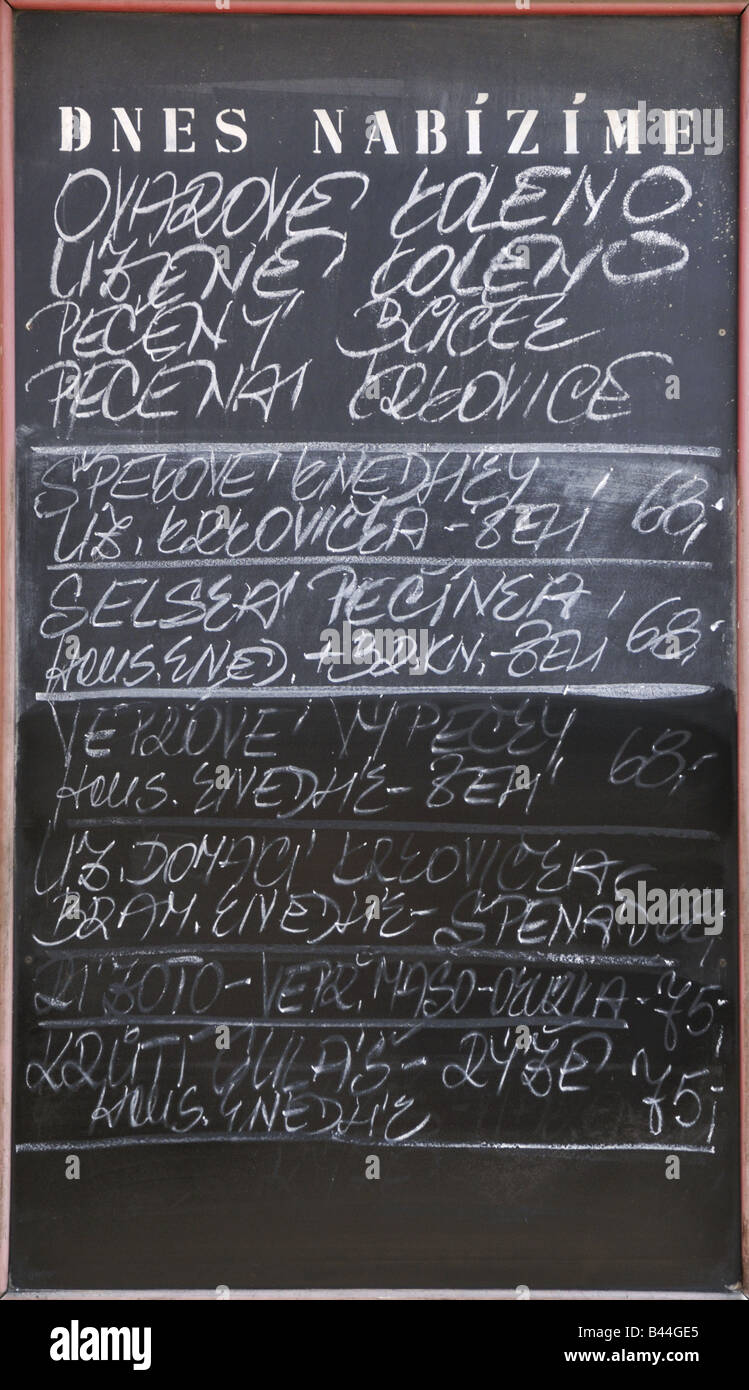 DNES NABÍZÍME
OVAROVÉ KOLENO
UZENÉ KOLENO
PEČENÝ BŮČEK
PEČENÁ KRKOVICE
ŠPEKOVÉ KNEDLÍKY
UZ. KRKOVIČKA - ZELÍ 68,-
SELSKÁ PEČÍNKA,
HOUS. KNED. + BR. KN. - ZELÍ 68,-
VEPŘOVÉ VÝPEČKY
HOUS. KNEDLÍK - ZELÍ 68,-
UZ. DOMÁCÍ KRKOVIČKA,
BRAM. KNEDLÍK - ŠPENÁT 68,-
RIZOTO - VEPŘ. MASO - OKURKA - 75,-
KRŮTÍ GULÁŠ - RÝŽE 75,-
HOUS. KNEDLÍK
alamy
Image ID: B44GE5
www.alamy.com